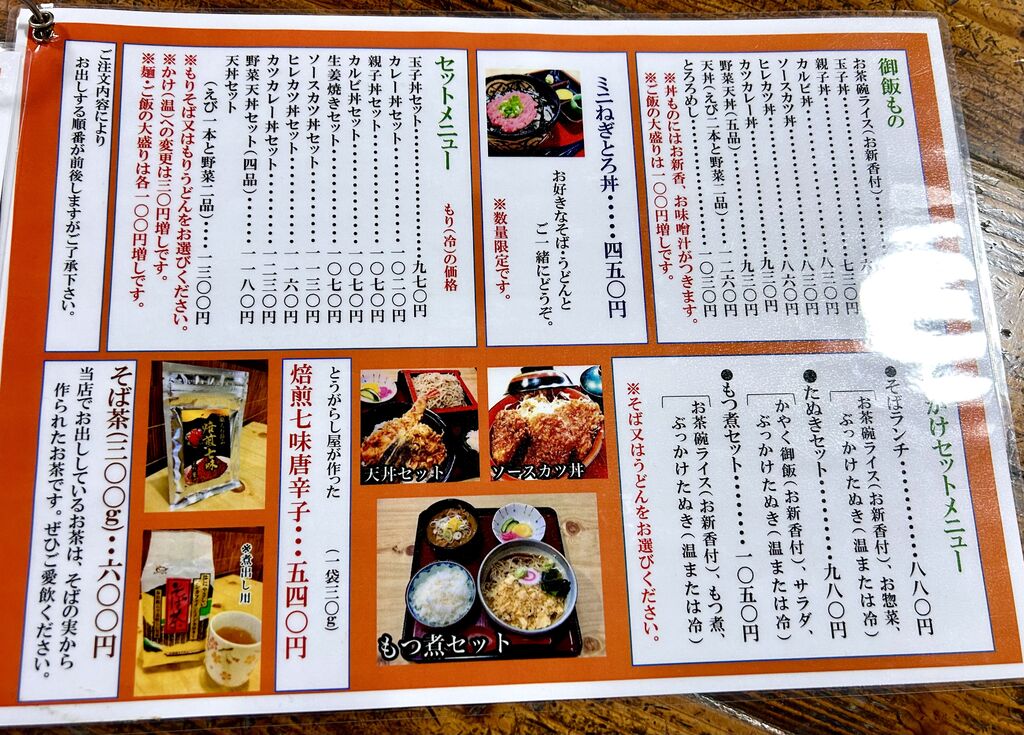 御飯もの
お茶碗ライス(お新香付)
玉子丼
親子丼
カルビ丼
ソースカツ丼
ヒレカツ丼
カツカレー丼
野菜天丼(五品)
天丼(えび二本と野菜二品)
とろろめし
※丼ものにはお新香、お味噌汁がつきます。
※ご飯の大盛りは一〇〇円増しです。
ミニねぎとろ丼‥‥四五〇円
お好きなそば・うどんと
ご一緒にどうぞ。
※数量限定です。
セットメニュー
もり(冷)の価格
玉子丼セット‥‥‥‥九七〇円
カレー丼セット‥‥‥一〇二〇円
親子丼セット‥‥‥‥一〇七〇円
カルビ丼セット‥‥‥一〇七〇円
生姜焼きセット‥‥‥一〇七〇円
ソースカツ丼セット‥‥一一三〇円
ヒレカツ丼セット‥‥‥一一六〇円
カツカレー丼セット‥‥一二三〇円
野菜天丼セット(四品)‥‥一一八〇円
天丼セット
(えび一本と野菜二品)‥‥一三〇〇円
※もりそば又はもりうどんをお選びください。
※かけ(温)への変更は三〇円増しです。
※麺・ご飯の大盛りは各一〇〇円増しです。
ご注文内容により
お出しする順番が前後しますがご了承下さい。
かけセットメニュー
●そばランチ‥‥‥‥八八〇円
お茶碗ライス(お新香付)、お惣菜、
ぶっかけたぬき(温または冷)
●たぬきセット‥‥‥‥九八〇円
かやく御飯(お新香付)、サラダ、
ぶっかけたぬき(温または冷)
●もつ煮セット‥‥‥一〇五〇円
お茶碗ライス(お新香付)、もつ煮、
ぶっかけたぬき(温または冷)
※そば又はうどんをお選びください。
ソースカツ丼
天丼セット
もつ煮セット
とうがらし屋が作った (一袋三〇g)
焙煎七味唐辛子‥‥五四〇円
焙煎七味
※煮出し用
そば茶
そば茶(三〇〇g)‥六〇〇円
当店でお出ししているお茶は、そばの実から
作られたお茶です。ぜひご愛飲ください。